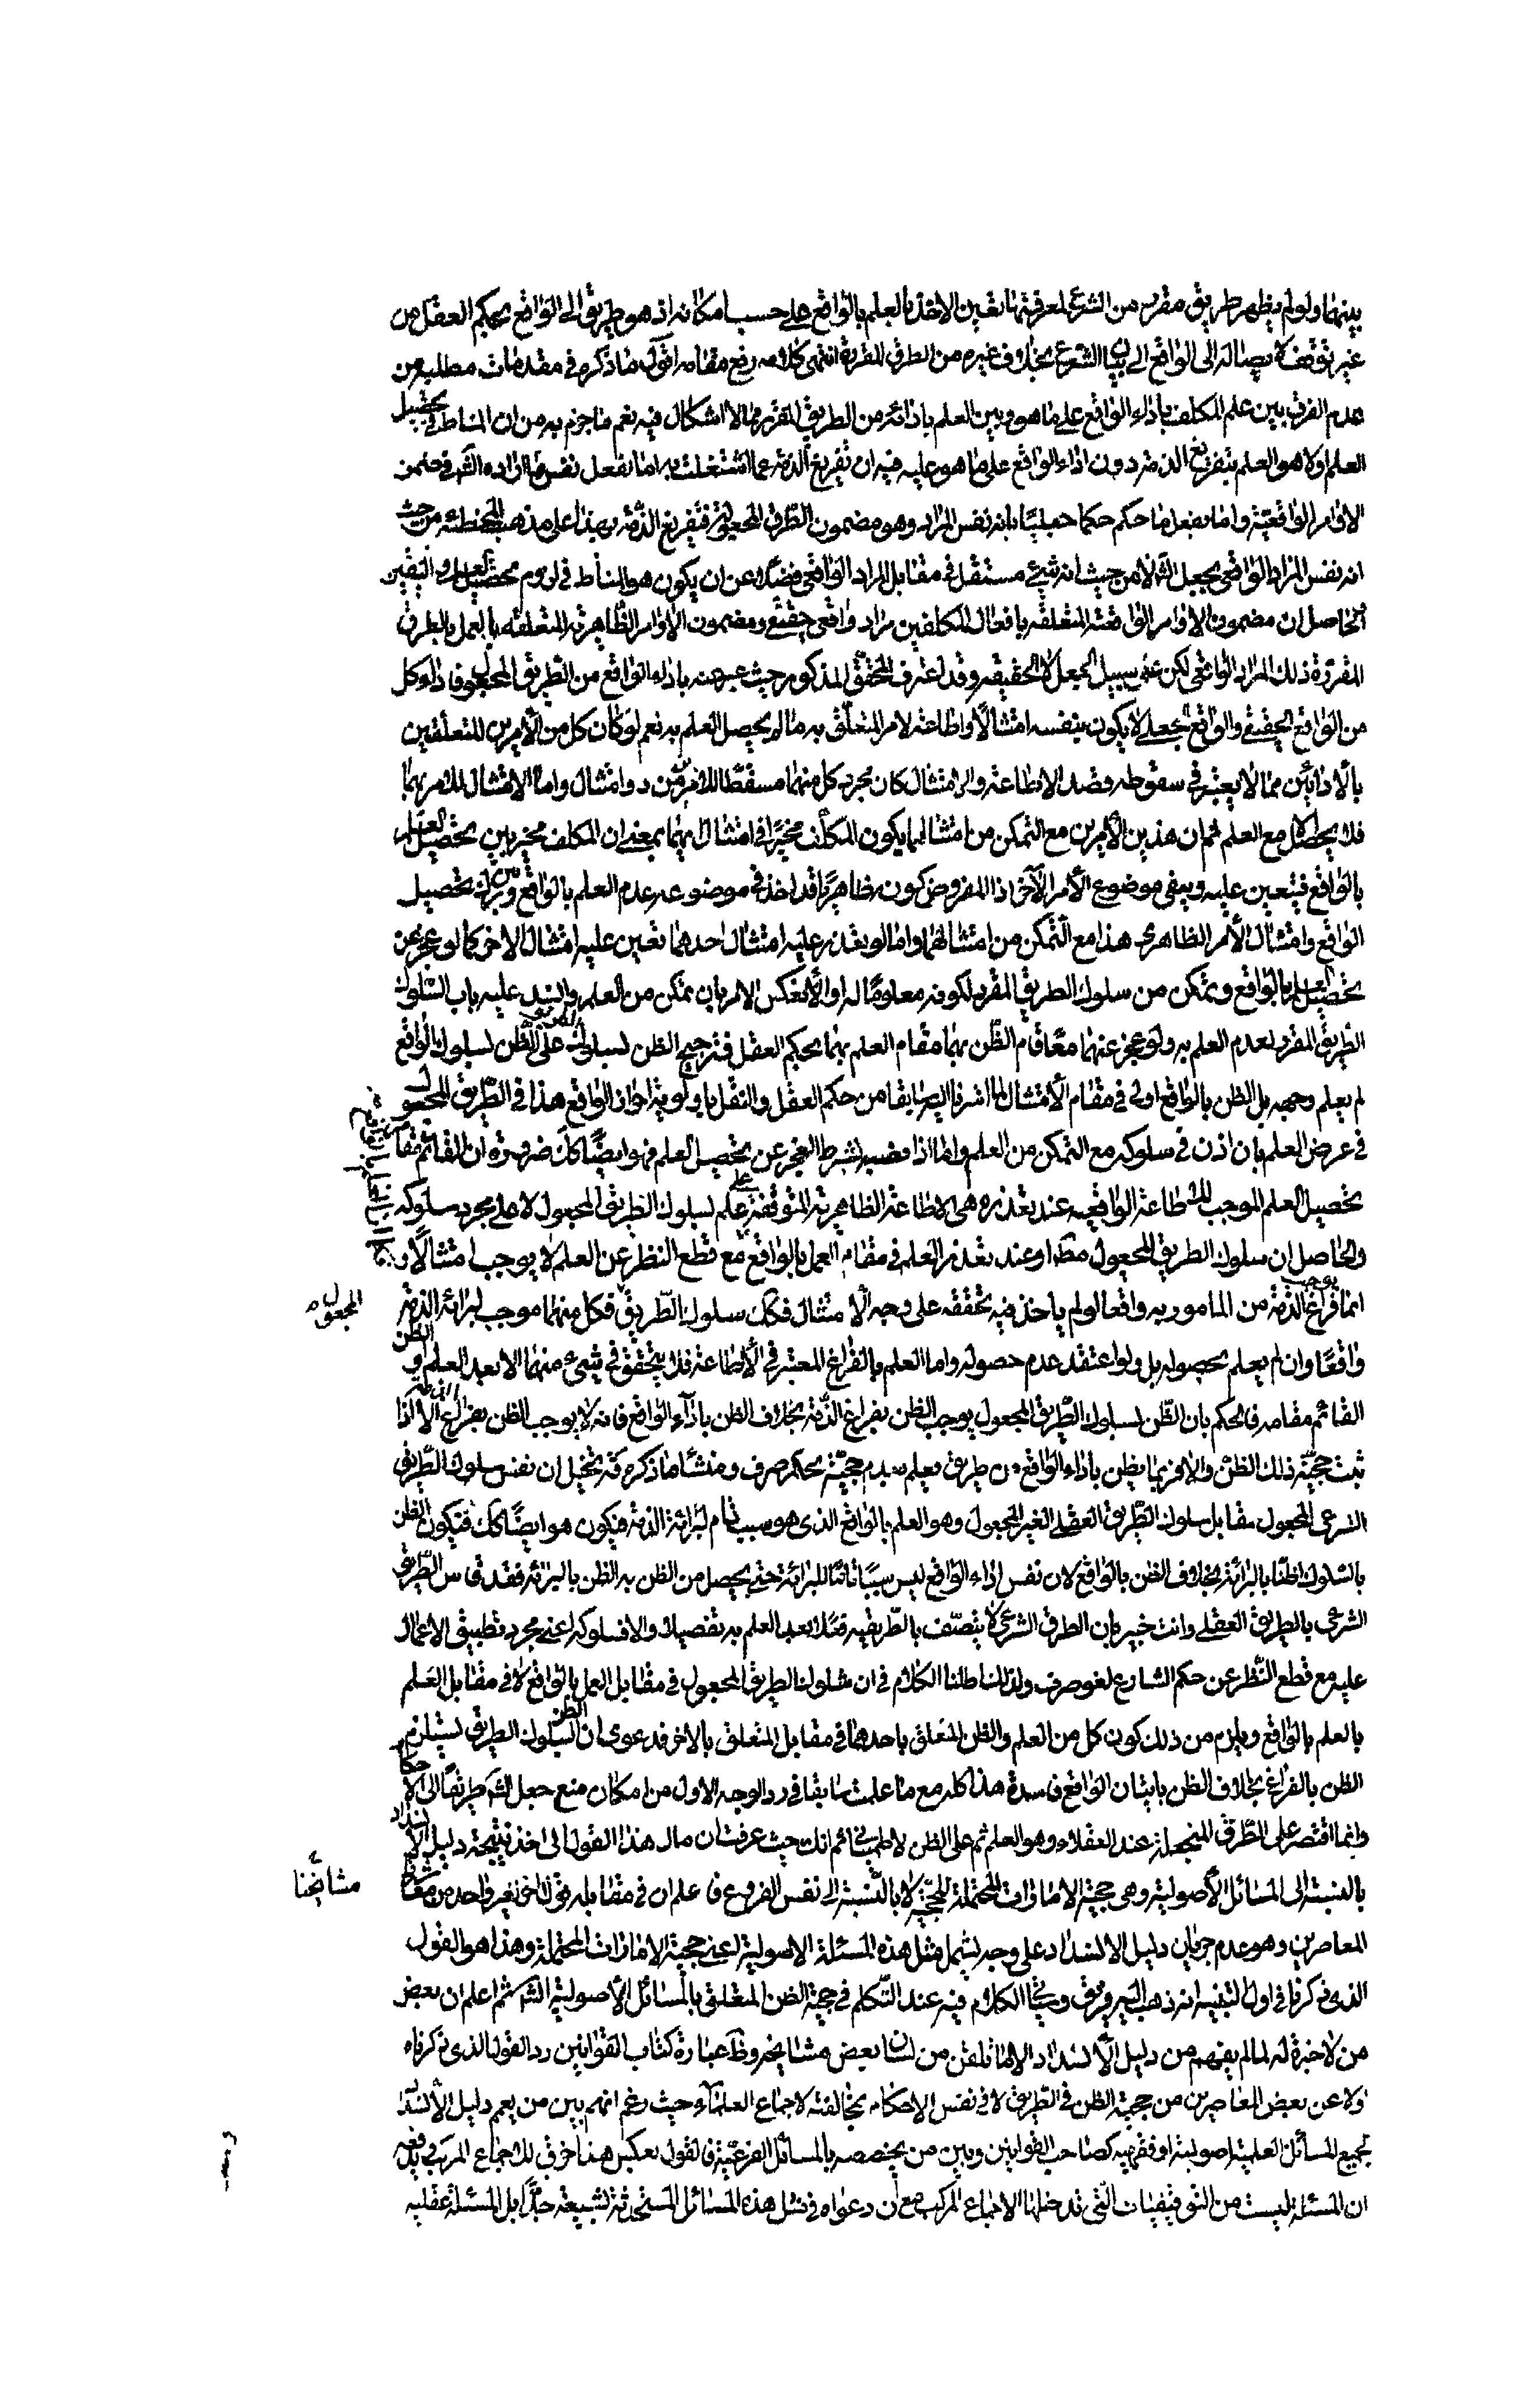 بينهما ولو لم يظهر طريق مقرر من الشرع لمعرفتهما تعين الاخذ بالعلم بالواقع على حسب امكانه اذ هو طريق الى الواقع بحكم العقل من
غير توقف لايصاله الى الواقع الى بيان الشرع بخلاف غيره من الطرق المقررة انتهى كلامه رفع مقامه اقول ما ذكره في مقدمات مطلبه من
عدم الفرق بين علم المكلف باداء الواقع على ما هو وبين العلم بادائه من الطريق المقرر مما لا اشكال فيه نعم ما جزم به من ان المناط في تحصيل
العلم اولا هو العلم بتفريغ الذمة دون اداء الواقع على ما هو عليه فيه ان تفريغ الذمة عما اشتغلت به اما بفعل نفس ما اراده الشه في ضمن
الاوامر الواقعية واما بفعل ما حكم حكما جعليا بانه نفس المراد وهو مضمون الطرق المجعولة فتفريغ الذمة بهذا على مذهب المخطئة من حيث
انه نفس المراد الواقعى بجعل الشه لا من حيث انه شيئ مستقل في مقابل المراد الواقعى فضلا عن ان يكون هو المناط في لزوم تحصيل العلم واليقين
الحاصل ان مضمون الاوامر الواقعية المتعلقة بافعال المكلفين مراد واقعى حقيقي ومضمون الاوامر الظاهرية المتعلقة بالعمل بالطرق
المقررة ذلك المراد الواقعى لكن على سبيل الجعل لا الحقيقة وقد اعترف المحقق المذكور حيث عبر عنه باداء الواقع من الطريق المجعول فاداء كل
من الواقع الحقيقي والواقع الجعلي لا يكون بنفسه امتثالا واطاعة لامر المتعلق به ما لم يحصل العلم به نعم لو كان كل من الامرين المتعلقين
بالادائين مما لا يعتبر في سقوطه قصد الاطاعة والامتثال كان مجرد كل منهما مسقطا للامر من دو امتثال واما الامتثال للامر بهما
فلا يحصل الا مع العلم ثم ان هذين الامرين مع التمكن من امتثالهما يكون المكلف مخيرا في امتثال ايهما بمعنى ان المكلف مخير بين تحصيل العلم
بالواقع فيتعين عليه وينفى موضوع الامر الاخر اذ المفروض كونه ظاهريا قد اخذ في موضوعه عدم العلم بالواقع وبين ترك تحصيل
الواقع وامتثال الامر الظاهرى هذا مع التمكن من امتثالهما واما لو تعذر عليه امتثال احدهما تعين عليه امتثال الاخر كما لو عجز عن
تحصيل العلم بالواقع وتمكن من سلوك الطريق المقرر لكونه معلوما له او انعكس الامر بان تمكن من العلم وانسد عليه باب السلوك
الطريق المقرر لعدم العلم به ولو عجز عنهما معا قام الظن بهما مقام العلم بهما بحكم العقل فترجيح الظن بسلوك الطريق على الظن بسلوك الواقع
لم يعلم وجهه بل الظن بالواقع اولى في مقام الامتثال لما اشرنا اليه سابقا من حكم العقل والنقل باولوية احراز الواقع هذا في الطريق المجعول
في عرض العلم بان اذن في سلوكه مع التمكن من العلم واما اذا نصبه بشرط العجز عن تحصيل العلم فهو ايضا كك ضرورة ان القائم مقام
تحصيل العلم الموجب للاطاعة الواقعية عند تعذره هي الاطاعة الظاهرية المتوقفة على علم سلوك الطريق المجعول لا على مجرد سلوكه
والحاصل ان سلوك الطريق المجعول مط او عند تعذر العلم في مقام العمل بالواقع مع قطع النظر عن العلم لا يوجب امتثالا و
انما يوجب فراغ الذمة من المامور به واقعا لو لم ياخذ فيه تحققه على وجه الامتثال فكك سلوك الطريق المجعول فكل منهما موجب لبرائة الذمة
واقعا وان لم يعلم بحصوله بل ولو اعتقد عدم حصوله واما العلم بالفراغ المعتبر في الاطاعة فلا يتحقق في شيئ منهما الا بعد العلم او الظن
القائم مقامه فالحكم بان الظن بسلوك الطريق المجعول يوجب الظن بفراغ الذمة بخلاف الظن باداء الواقع فانه لا يوجب الظن بفراغ الذمة الا اذا
ثبت حجية ذلك الظن والا فربما يظن باداء الواقع من طريق يعلم بعدم حجيته تحكم صرف ومنشاء ما ذكره قه تخيل ان نفس سلوك الطريق
الشرعى المجعول مقابل سلوك الطريق العقلي الغير المجعول وهو العلم بالواقع الذى هو سبب تام لبرائة الذمة فيكون هو ايضا كك فيكون الظن
بالسلوك ظنا بالبرائة بخلاف الظن بالواقع لان نفس اداء الواقع ليس سببا تاما للبرائة حتى يحصل من الظن به الظن بالبرائة فقد قاس الطريق
الشرعى بالطريق العقلي وانت خبير بان الطريق الشرعى لا يتصف بالطريقية فعلا الا بعد العلم به تفصيلا والا فسلوكه اعنى مجرد تطبيق الاعمال
عليه مع قطع النظر عن حكم الشارع لغو صرف ولذلك اطلنا الكلام في ان سلوك الطريق المجعول في مقابل العمل بالواقع لا في مقابل العلم
بالعلم بالواقع ويلزم من ذلك كون كل من العلم والظن المتعلق باحدهما في مقابل المتعلق بالاخر فدعوى ان الظن بسلوك الطريق يستلزم
الظن بالفراغ بخلاف الظن باتيان الواقع فاسدة هذا كله مع ما علمت سابقا في رد الوجه الاول من امكان منع جعل الشه طريقا الى الاحكام
وانما اقتصر على الطرق المنجعلة عند العقلاء وهو العلم ثم على الظن الاطمينانى ثم انك حيث عرفت ان مال هذا القول الى اخذ نتيجة دليل الانسداد
بالنسبة الى المسائل الاصولية وهى حجية الامارات المحتملة للحجية لا بالنسبة الى نفس الفروع فاعلم ان في مقابله قولا اخر لغير واحد من مشايخنا
المعاصرين وهو عدم جريان دليل الانسداد على وجه يشمل مثل هذه المسئلة الاصولية اعنى حجية الامارات المحتملة وهذا هو القول
الذى ذكرنا في اول التنبيه انه ذهب اليه فريق وسياتى الكلام فيه عند التكلم في حجية الظن المتعلق بالمسائل الاصولية انشه ثم اعلم ان بعض
من لا خبرة له لما لم يفهم من دليل الانسداد الا ما تلقن من لسان بعض مشايخه وظ عبارة كتاب القوانين رد القول الذى ذكرناه
اولا عن بعض المعاصرين من حجية الظن في الطريق لا في نفس الاحكام بمخالفته لاجماع العلماء حيث زعم انهم بين من يعمم دليل الانسداد
لجميع المسائل العلمية اصولية او فقهية كصاحب القوانين وبين من يخصصه بالمسائل الفرعية فالقول بعكس هذا خرق للاجماع المركب ويدفعه
ان المسئلة ليست من التوقيفيات التى تدخلها الاجماع المركب مع ان دعواه في مثل هذه المسائل المستحدثة بشيعة جدا بل المسئلة عقلية